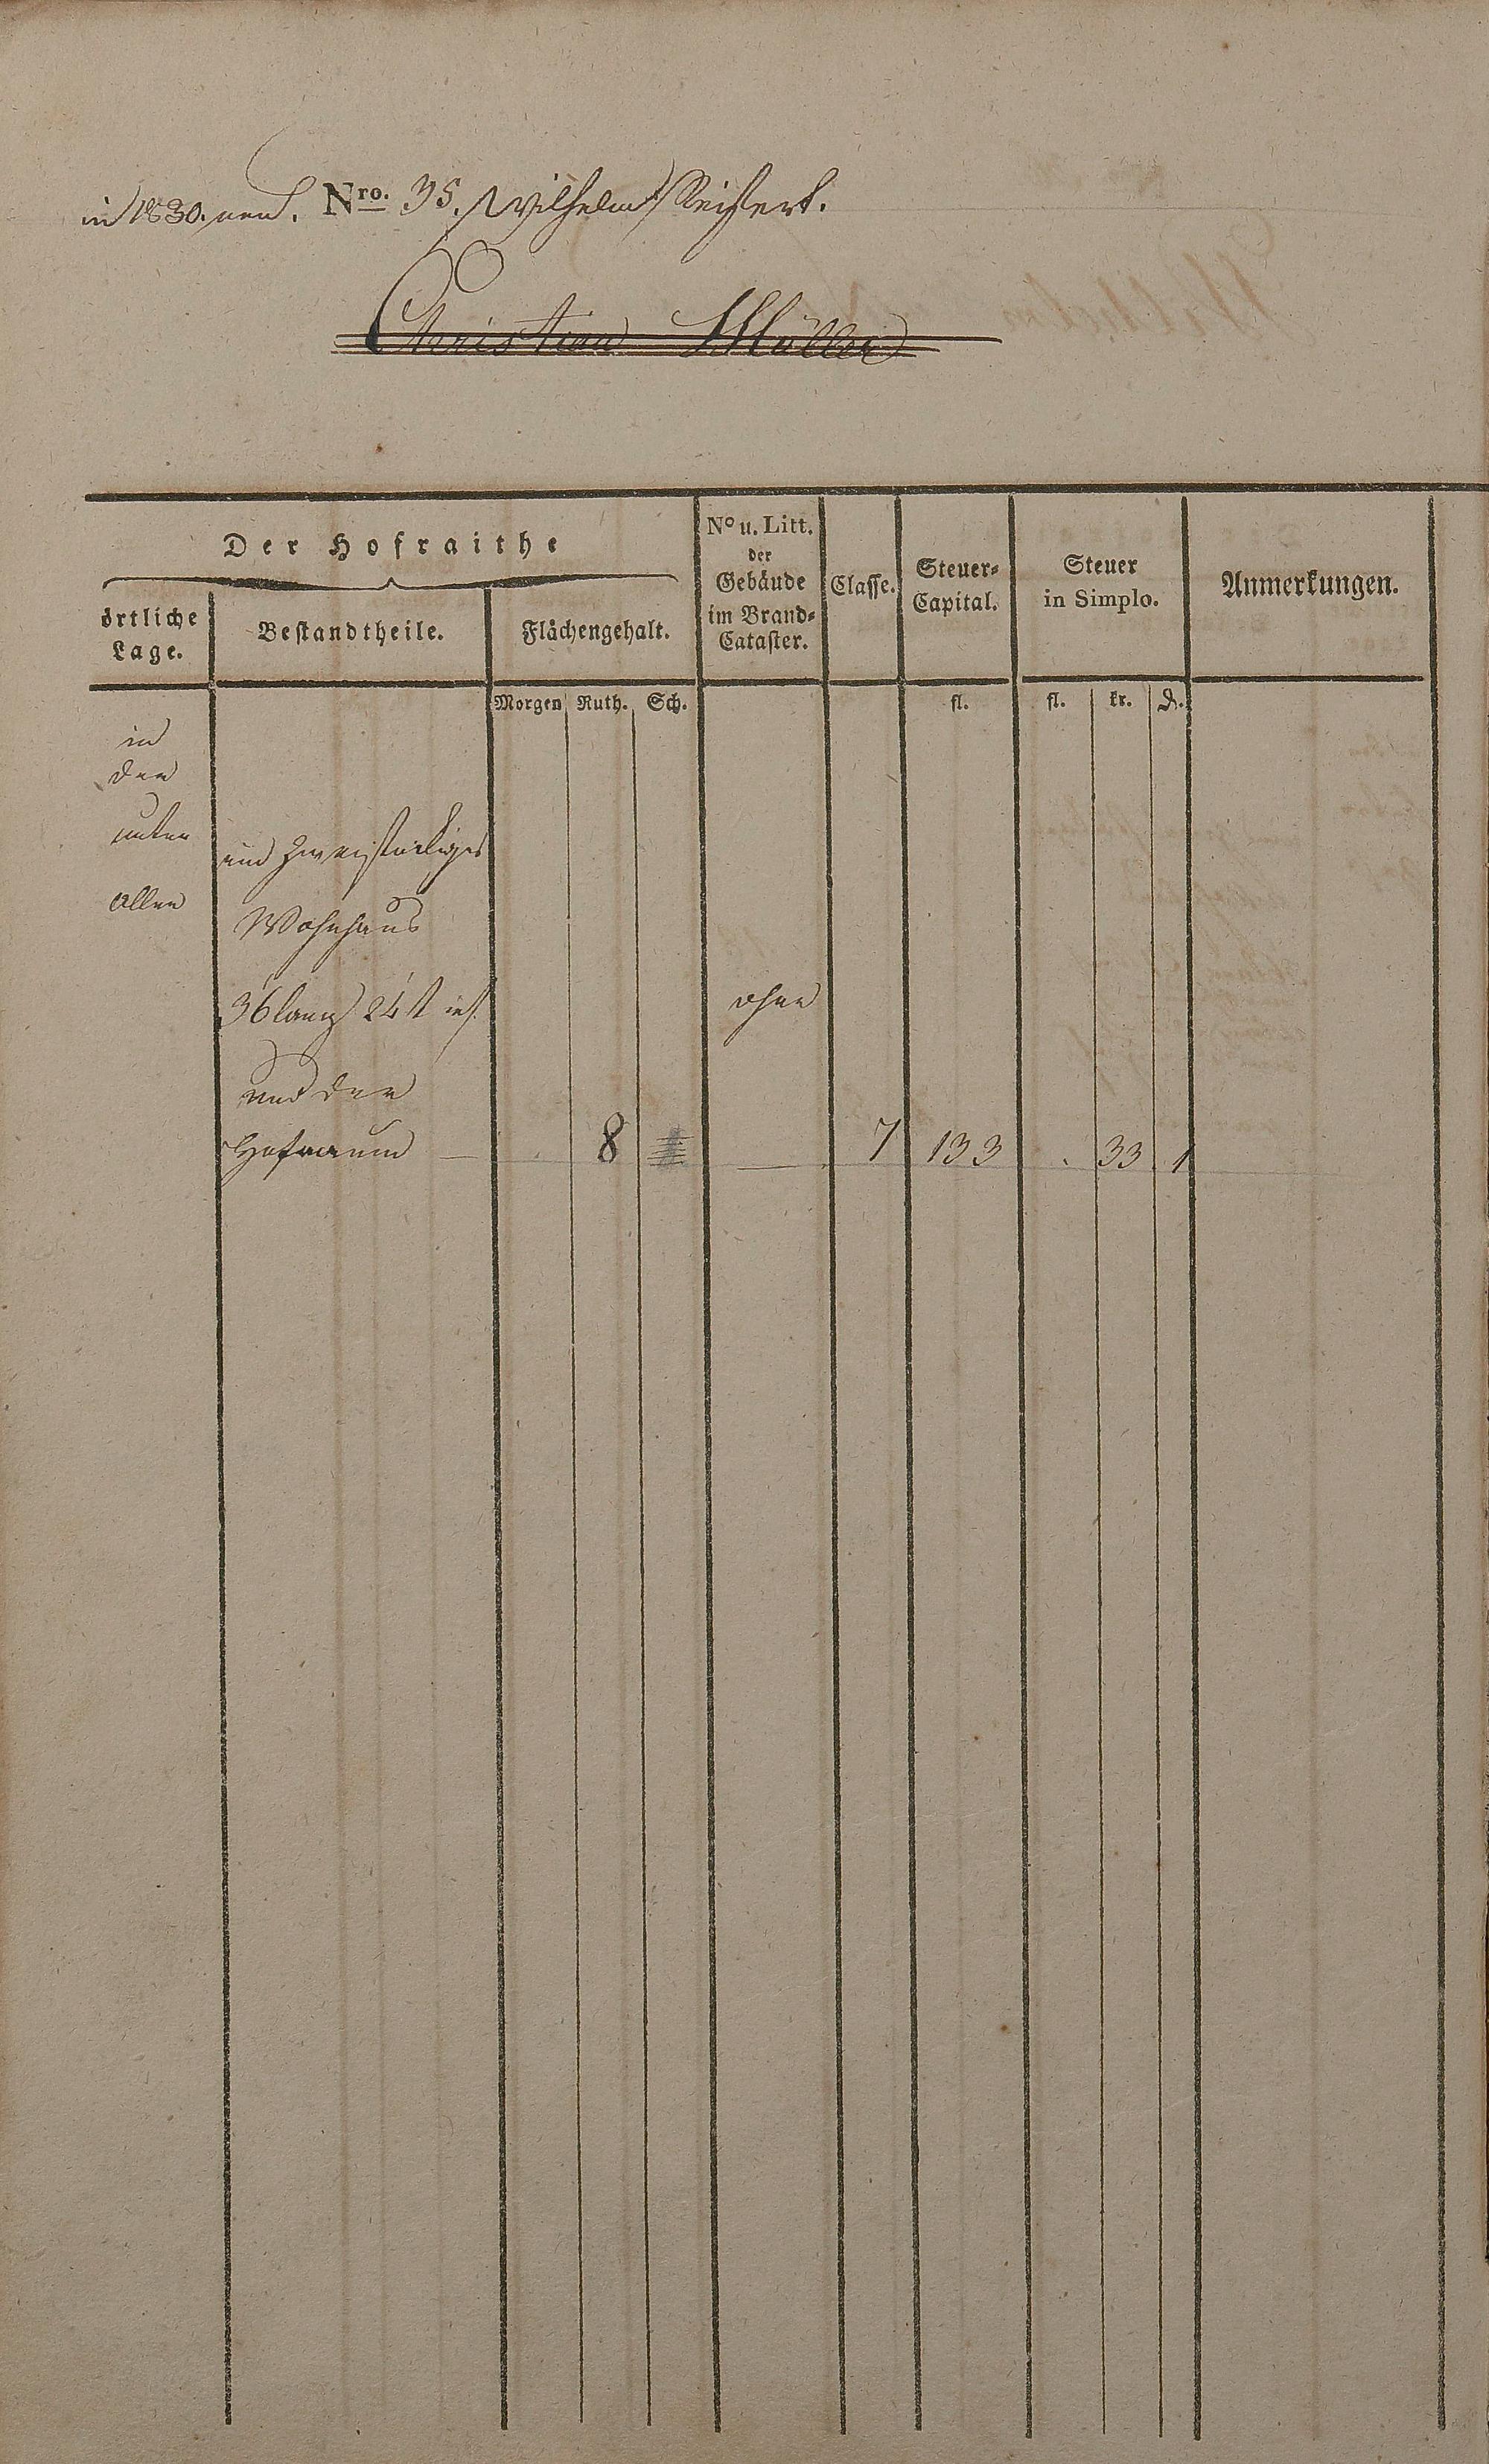 in 1830. Nro. 35. Wilhelm Seifert.
Christian Müller
Der Hofraithe
örtliche
Lage.
Bestandtheile.
Flächengehalt.
No u. Litt.
der
Gebäude
im Brand-
Cataster.
Classe.
Steuer-
Capital.
Steuer
in Simplo.
Anmerkungen.
Morgen Ruth. Sch. fl. fl. kr. ₰.
in
der
unter
allee
ein zweystöckiges
Wohnhaus
36' lang 24' t
ohne
und der
Hofraum — 8 — 7 133 . 33 1